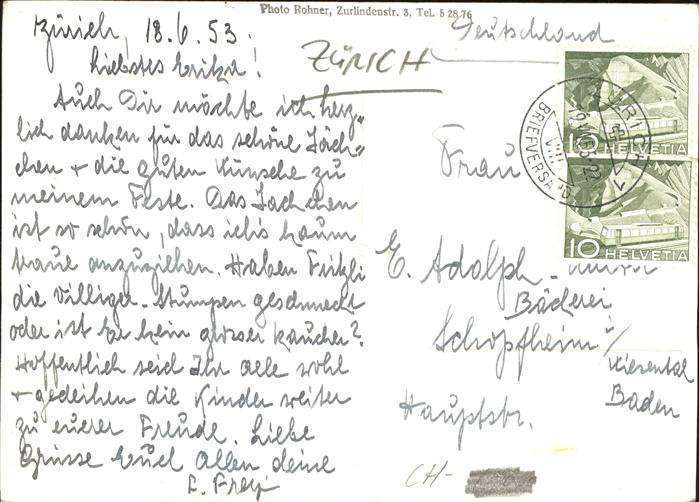 Photo Rohner, Zurlindenstr. 3, Tel. 5 28 76
Zürich, 18.6.53.
Liebstes Erika!
Auch Dir möchte ich herz-
lich danken für das schöne Jäck-
chen + die guten Wünsche zu
meinem Feste. Das Jäckchen
ist so schön, dass ich's kaum
traue anzuziehen. Haben Fritzli
die Villiger-Stumpen geschmeckt
oder ist er kein grosser Raucher?
Hoffentlich seid Ihr alle wohl
+ gedeihen die Kinder weiter
zu eurer Freude. Liebe
Grüsse Euch allen deine
L. Frey
Deutschland
ZÜRICH
Frau
E. Adolph-
Bäckerei
Schopfheim/
Wiesental
Baden
Hauptstr.
CH-
10 HELVETIA
10 HELVETIA
BRIEFVERSAND